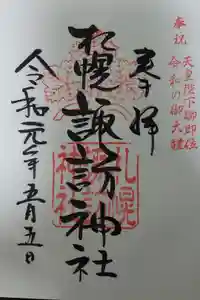 奉祝
天皇陛下御即位
令和の御大禮
奉拝
札幌諏訪神社
令和元年五月五日